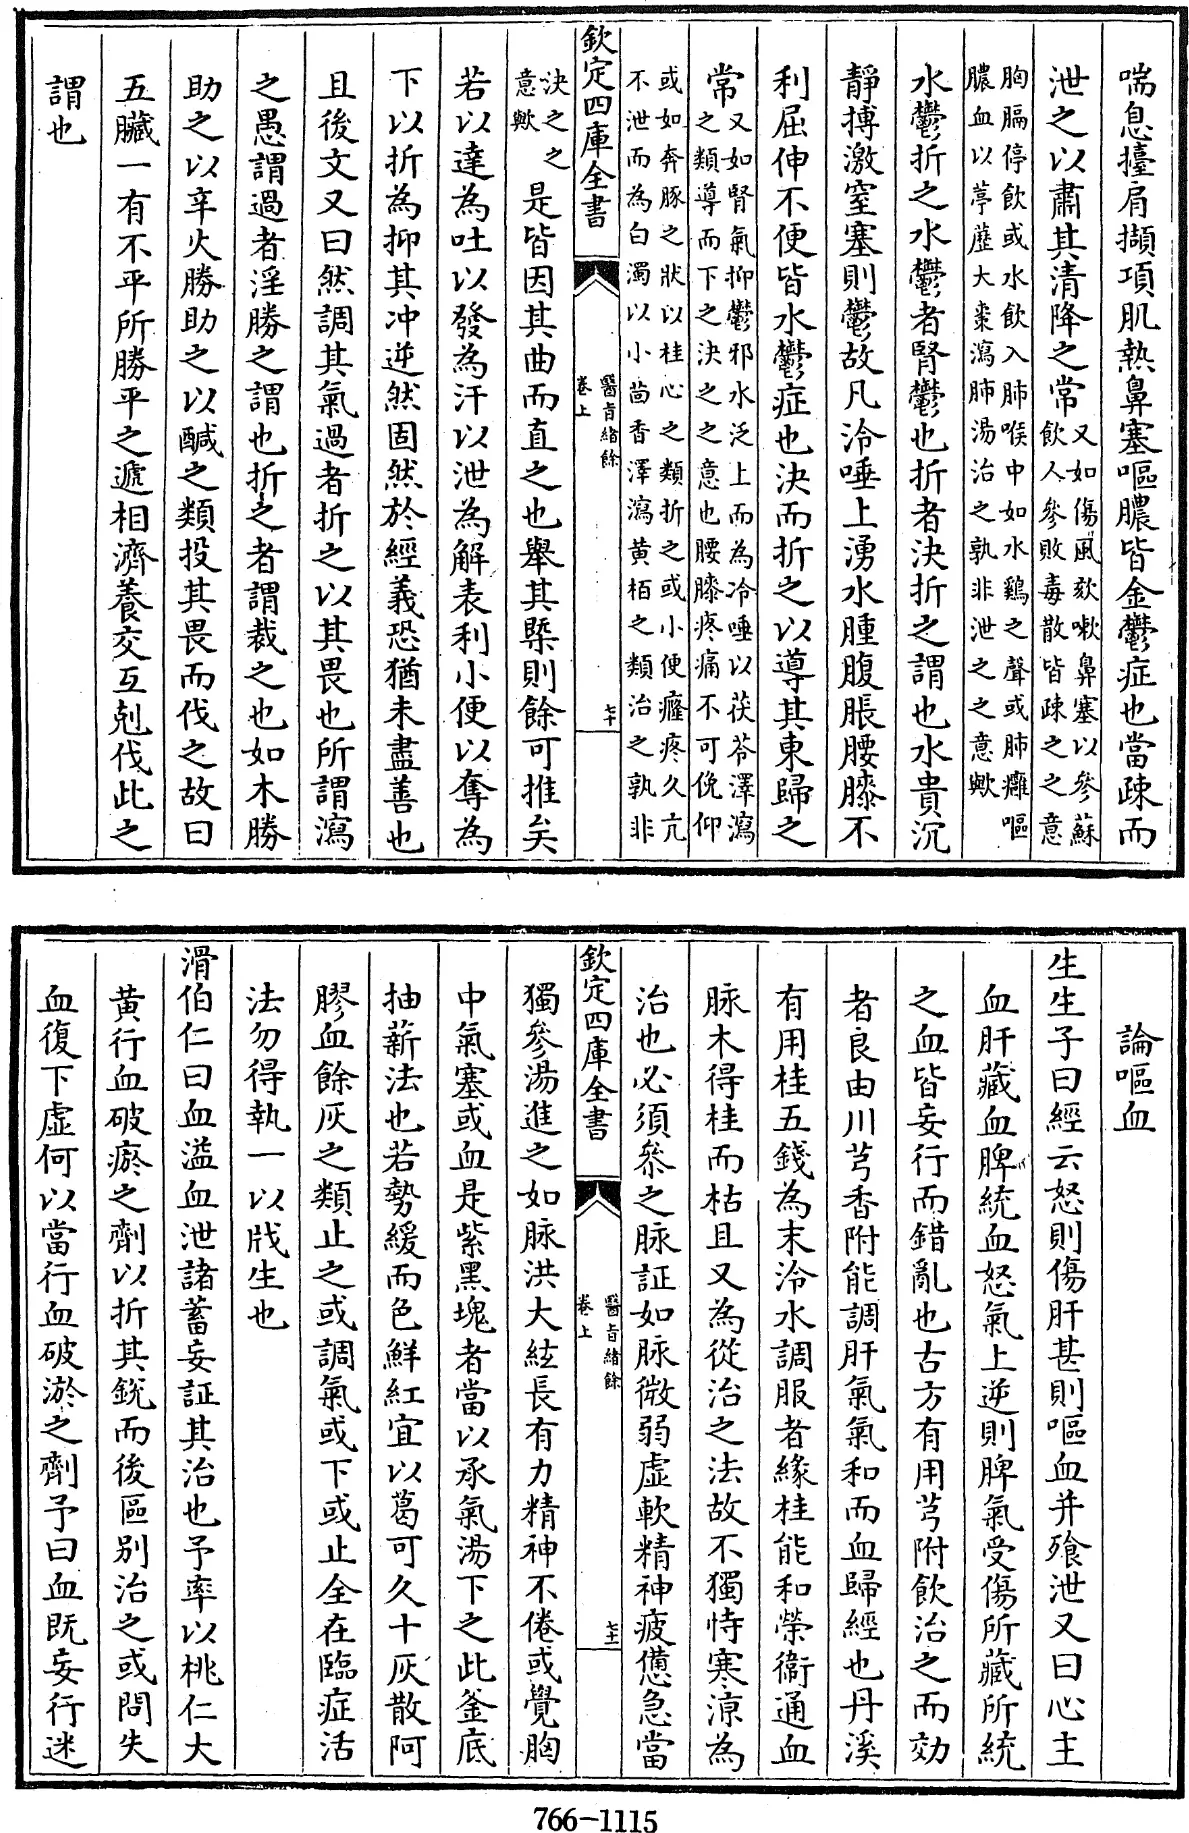 喘息擡肩擷項肌熱鼻塞嘔膿皆金鬱症也當疎而
泄之以肅其清降之常
又如傷風欬嗽鼻塞以參蘇
飲人參敗毒散皆疎之之意
胸膈停飲或水飲入肺喉中如水鷄之聲或肺癰嘔
膿血以葶藶大棗瀉肺湯治之孰非泄之之意歟
水鬱折之水鬱者腎鬱也折者決折之謂也水貴沉
靜搏激窒塞則鬱故凡冷唾上湧水腫腹脹腰膝不
利屈伸不便皆水鬱症也決而折之以導其東歸之
常
又如腎氣抑鬱邪水泛上而為冷唾以茯苓澤瀉
之類導而下之決之之意也腰膝疼痛不可俛仰
或如奔豚之狀以桂心之類折之或小便癃疼久亢
不泄而為白濁以小茴香澤瀉黄栢之類治之孰非
欽定四庫全書
醫旨緒餘
卷上
七十
決之之
意歟
是皆因其曲而直之也舉其槩則餘可推矣
若以達為吐以發為汗以泄為解表利小便以奪為
下以折為抑其冲逆然固然於經義恐猶未盡善也
且後文又曰然調其氣過者折之以其畏也所謂瀉
之愚謂過者淫勝之謂也折之者謂裁之也如木勝
助之以辛火勝助之以鹹之類投其畏而伐之故曰
五臟一有不平所勝平之遞相濟養交互尅伐此之
謂也
論嘔血
生生子曰經云怒則傷肝甚則嘔血并飱泄又曰心主
血肝藏血脾統血怒氣上逆則脾氣受傷所藏所統
之血皆妄行而錯亂也古方有用芎附飲治之而効
者良由川芎香附能調肝氣氣和而血歸經也丹溪
有用桂五錢為末冷水調服者緣桂能和榮衞通血
脉木得桂而枯且又為從治之法故不獨恃寒凉為
治也必須叅之脉証如脉微弱虛軟精神疲憊急當
欽定四庫全書
醫旨緒餘
卷上
七十一
獨參湯進之如脉洪大絃長有力精神不倦或覺胸
中氣塞或血是紫黑塊者當以承氣湯下之此釜底
抽薪法也若勢緩而色鮮紅宜以葛可久十灰散阿
膠血餘灰之類止之或調氣或下或止全在臨症活
法勿得執一以戕生也
滑伯仁曰血溢血泄諸蓄妄証其治也予率以桃仁大
黄行血破瘀之劑以折其銳而後區别治之或問失
血復下虛何以當行血破淤之劑予曰血既妄行迷
766-1115